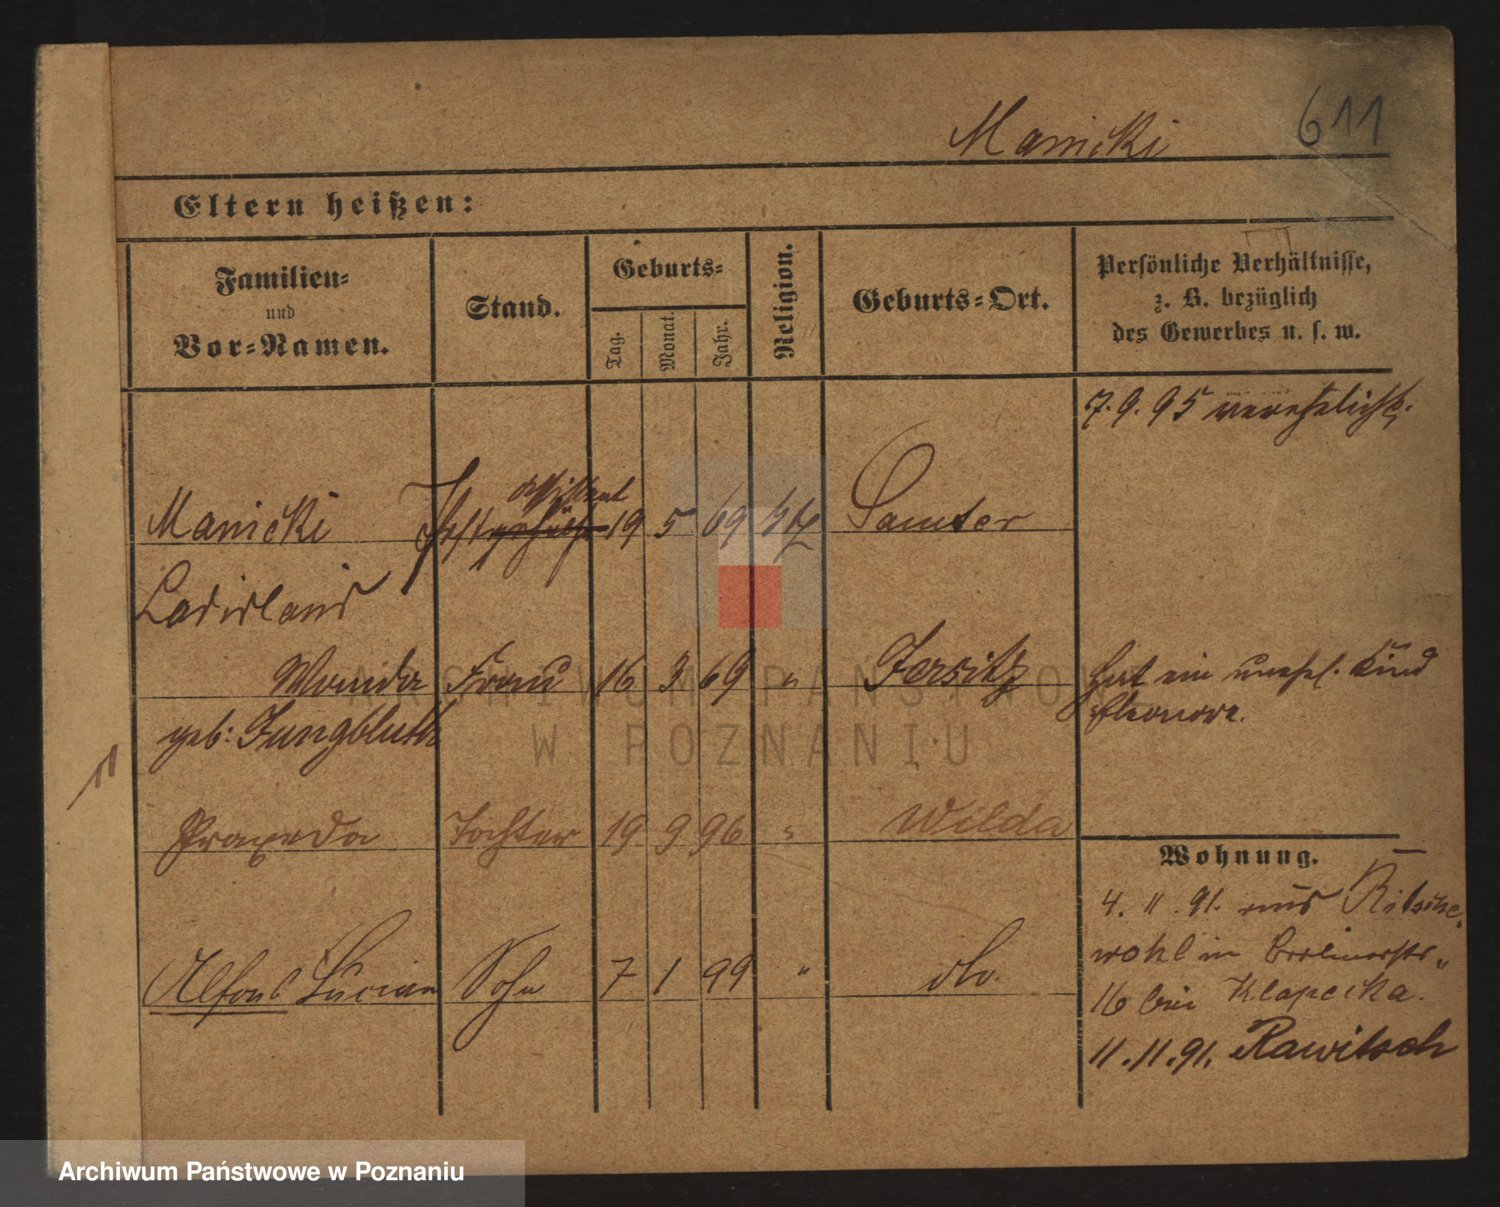 Manicki 611
Eltern heißen:
Familien=
und
Vor=Namen.
Stand.
Geburts=
Tag.
Monat.
Jahr.
Religion.
Geburts=Ort.
Persönliche Verhältnisse,
z. B. bezüglich
des Gewerbes u. s. w.
7. 9. 95 verehelicht.
assistent
Manicki Postgehülfe 19 5 69 kth Samter
Ladislaus
Wanda Frau 16 3 69 " Jersitz
geb: Jungbluth
hat ein unehel. Kind
Eleonore.
11
Praxeda Tochter 19 9 96 " Wilda
Alfons Lucian Sohn 7 1 99 " do.
Wohnung.
4. 11. 91. aus
wohl in Berlinerstr.
16 bei Klapecka.
11. 11. 91. Rawitsch
ARCHIWUM PAŃSTWOWE
W POZNANIU
Archiwum Państwowe w Poznaniu